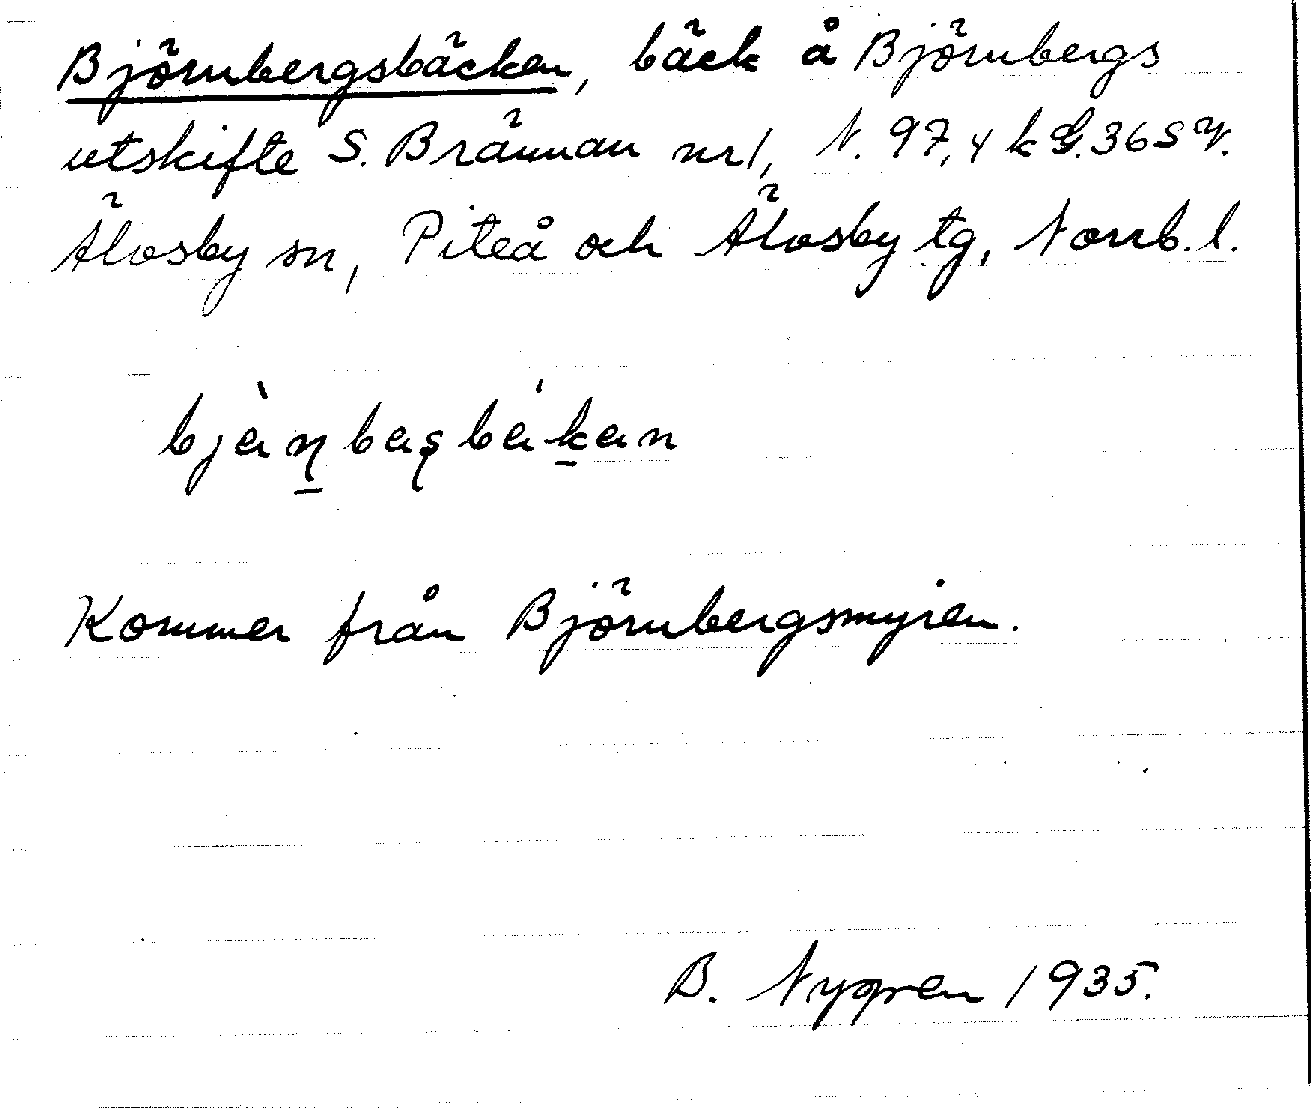 Björnbergsbäcken, bäck å Björnbergs
utskifte S. Brännan nr 1, N. 97,4 k G. 36 S V.
Älvsby sn, Piteå och Älvsby tg, Norrb. l.
bjὰṉbaşbákan
Kommer från Björnbergsmyren.
B. Nygren 1935.